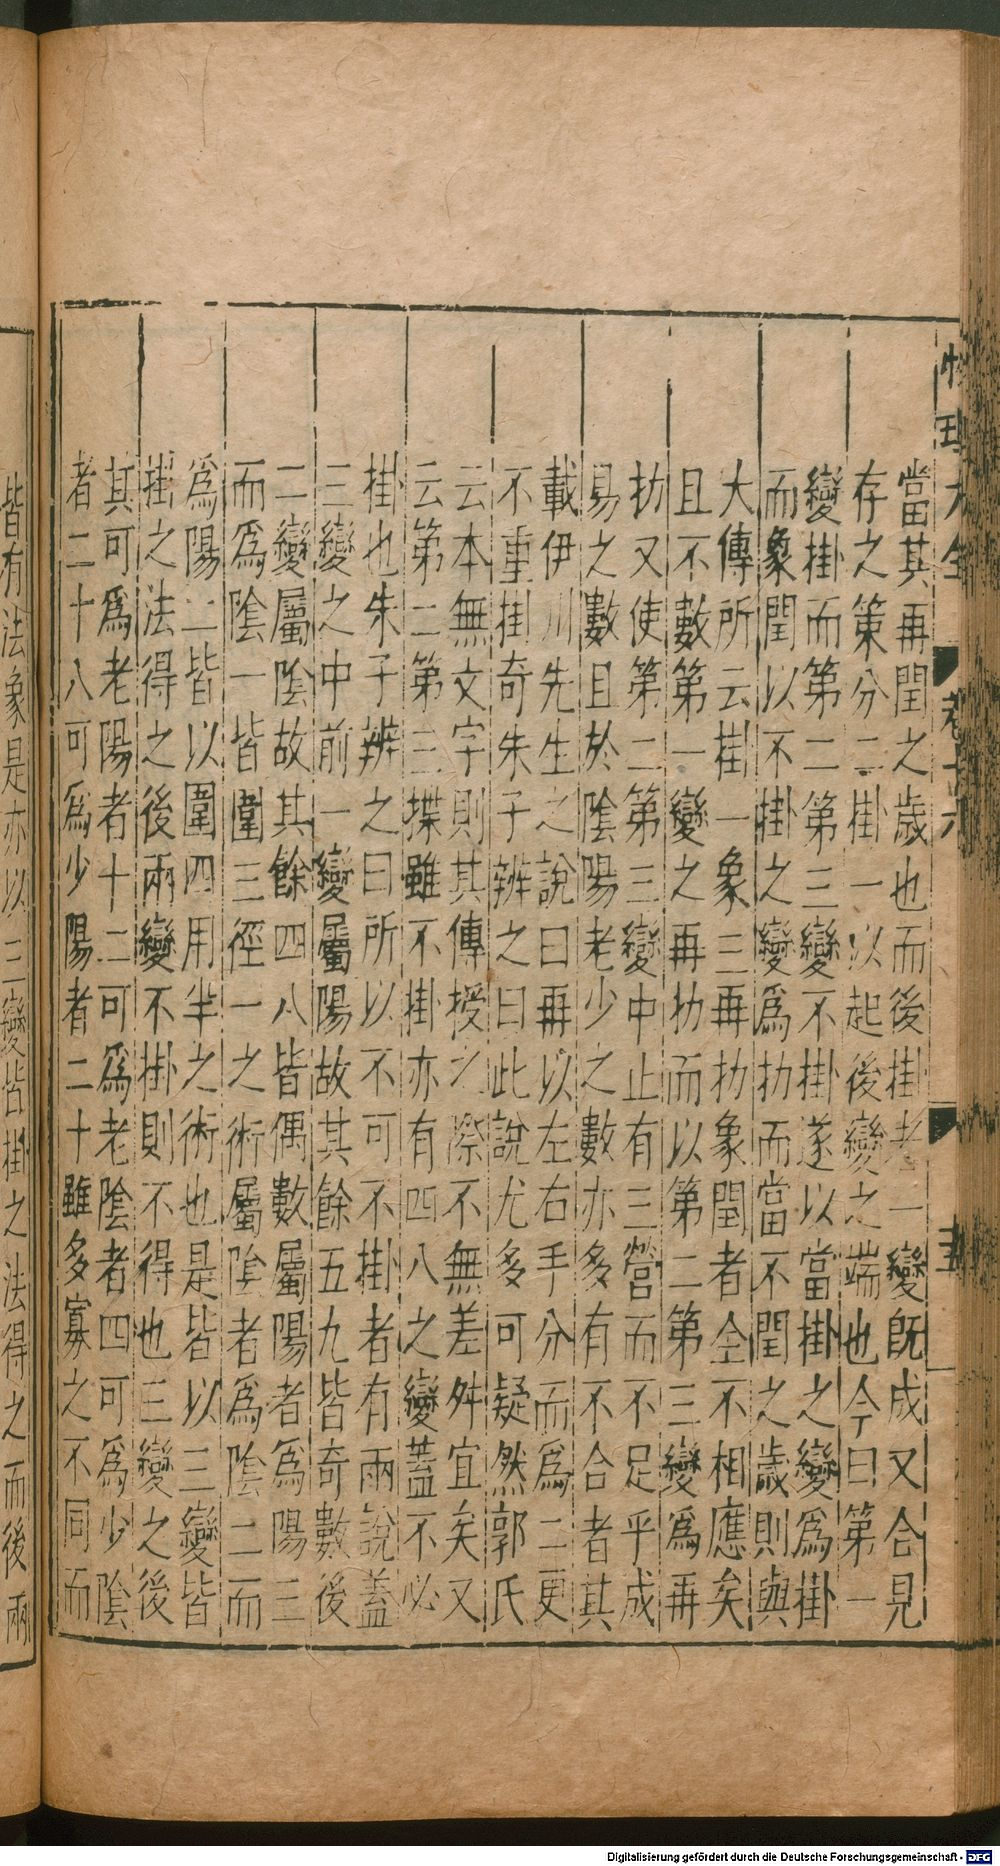 性理大全 卷十六 五
當其再閏之歲也而後掛者一變旣成又合見
存之策分二掛一以起後變之端也今曰第一
變掛而第二第三變不掛遂以當掛之變爲掛
而象閏以不掛之變爲扐而當不閏之歲則與
大傳所云掛一象三再扐象閏者全不相應矣
且不數第一變之再扐而以第二第三變爲再
扐又使第二第三變中止有三營而不足乎成
易之數且於陰陽老少之數亦多有不合者其
載伊川先生之說曰再以左右手分而爲二更
不重掛奇朱子辨之曰此說尤多可疑然郭氏
云本無文字則其傳授之際不無差舛宜矣又
云第二第三揲雖不掛亦有四八之變蓋不必
掛也朱子辨之曰所以不可不掛者有兩說蓋
三變之中前一變屬陽故其餘五九皆奇數後
二變屬陰故其餘四八皆偶數屬陽者爲陽三
而爲陰一皆圍三徑一之術屬陰者爲陰二而
爲陽二皆以圍四用半之術也是皆以三變皆
掛之法得之後兩變不掛則不得也三變之後
其可爲老陽者十二可爲老陰者四可爲少陰
者二十八可爲少陽者二十雖多寡之不同而
皆有法象是亦以三變皆掛之法得之而後兩
Digitalisierung gefördert durch die Deutsche Forschungsgemeinschaft - DFG